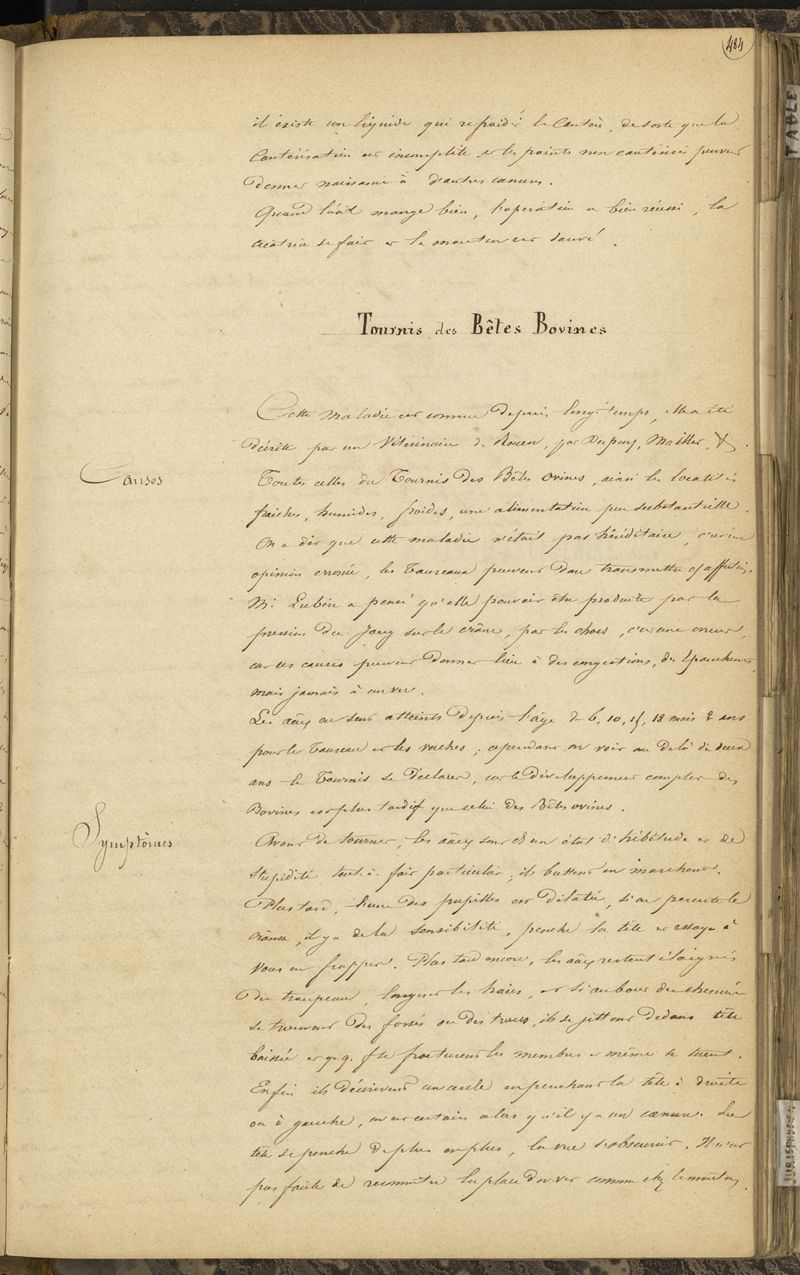 484
il existe un liquide qui refroidit le Cautère, de sorte que la
Cautérisation est incomplète et les points non cautérisés peuvent
donner naissance à d'autres cœnures.
Quand l'aãl mange bien, l'opération a bien réussi, la
cicatrice se fait et le mouton est sauvé.
Tournis des Bêtes Bovines
Cette maladie est connue depuis long-temps, elle a été
décrite par un Vétérinaire de Rouen, par Dupuy, Maillet, &.
Causes
Toutes celles du Tournis des Bêtes ovines, ainsi les localités
fraiches, humides, froides, une alimentation peu substantielle.
On a dit que cette maladie n'était pas héréditaire, c'est une
opinion erronée, les Taureaux peuvent donc transmettre
Mr. Lubin a pensé qu'elle pouvait être produite par la
pression du Joug sur le crâne, par les chocs, c'est une erreur,
car ces causes peuvent donner lieu à des congestions, des épanchements,
mais jamais à un ver.
Les aãux en sont atteints depuis l'âge de 6, 10, 15, 18 mois 2 ans
pour le Taureau et les vaches; cependant on voit au delà de deux
ans le Tournis se déclarer, car le développement complet des
Bovines est plus tardif que celui des Bêtes ovines.
Symptômes
Avant de tourner, les aãux sont ds un état d'hébétude et de
stupidité tout à fait particulier; ils buttent en marchant.
Plus tard, l'une des pupilles est dilatée, si on percute le
crâne, il y a de la sensibilité, penche la tête et essaye à
vous en frapper. Plus tard encore, les aãux restent éloignés
du troupeau, longent les haies, et si au bout du chemin
se trouvent des fossés ou des trous, ils se jettent dedans tête
baissée et q.q. f se fracturent les membres et même se tuent.
Enfin ils décrivent un cercle en penchant la tête à droite
ou à gauche, on est certain alors qu'il y a un cœnure. La
tête se penche de plus en plus, la vue s'obscurcit. Il n'est
pas facile de reconnaitre la place du ver comme chez le mouton,
TABLE
JURISPRUDENCE